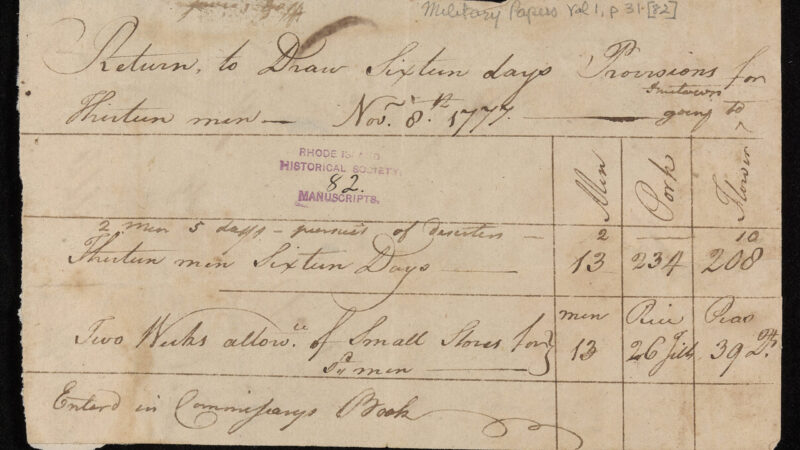 Military Papers Vol 1, p 31 [82]
Return, to Draw Sixteen days Provisions for
Thirteen men — Novr. 8th. 1777. — going to
RHODE ISLAND
HISTORICAL SOCIETY.
82.
MANUSCRIPTS.
Men Pork Flower
2 men 5 days - pursuit of deserters — 2 — 10
Thirteen men Sixteen Days — 13 234 208
men Rice Peas
Two Weeks allowce of Small Stores for } 13 26 Jills 39
sd men —
Enterd in Commissarys Book